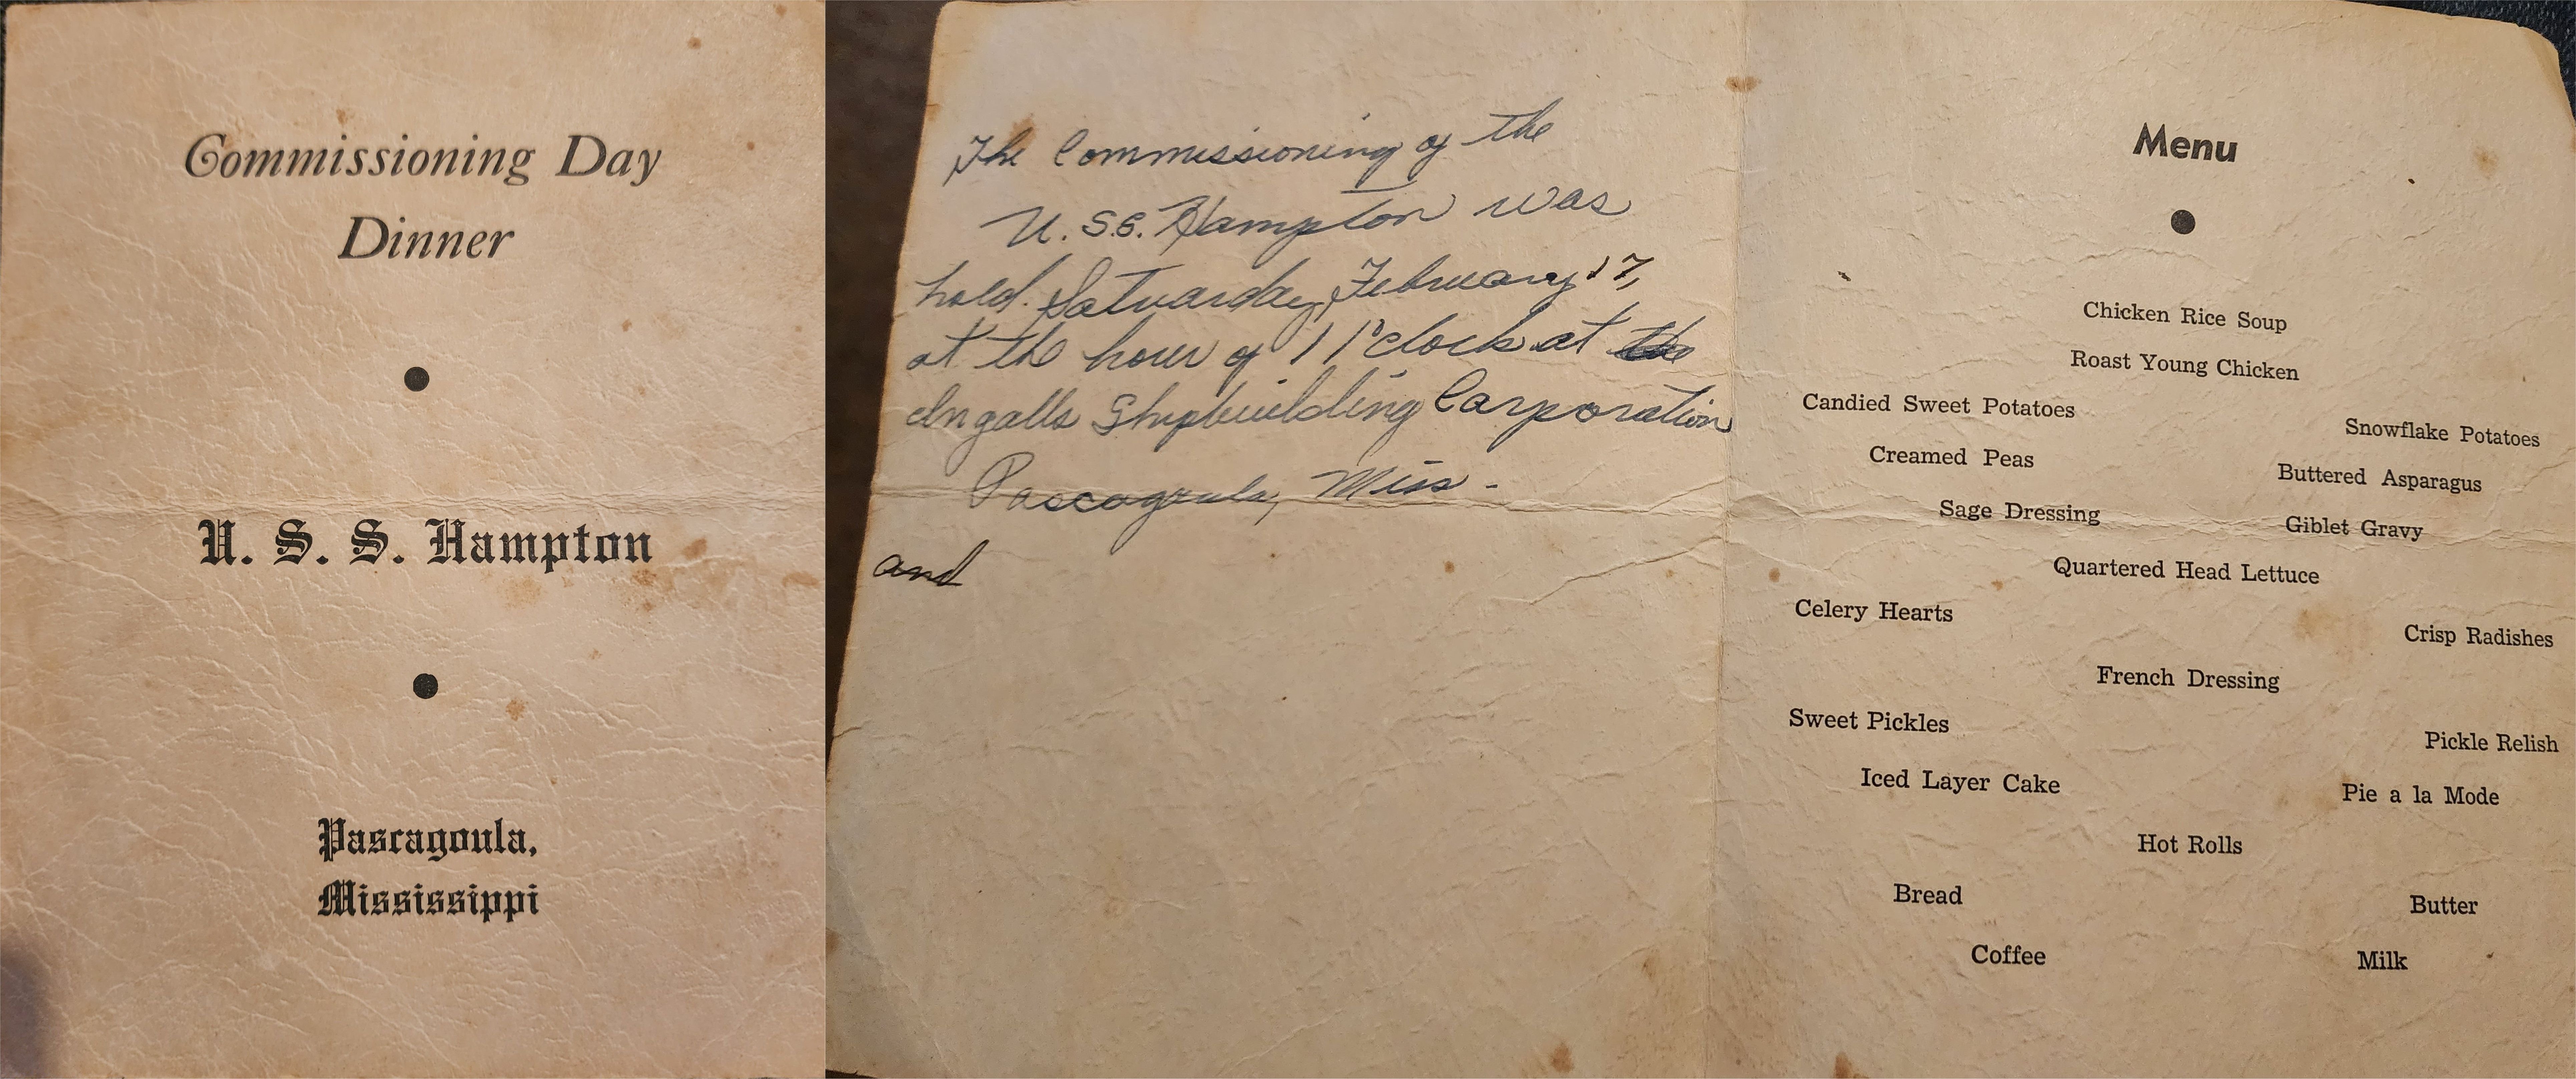 Commissioning Day
Dinner
U. S. S. Hampton
Pascagoula,
Mississippi
The Commissioning of the
U.S.S. Hampton was
held. Satuarday, February 17,
at the hour of 11 o'clock at the
Ingalls Shipbuilding Corporation
Pascagoula, Miss -
and
Menu
Chicken Rice Soup
Roast Young Chicken
Candied Sweet Potatoes
Snowflake Potatoes
Creamed Peas
Buttered Asparagus
Sage Dressing
Giblet Gravy
Quartered Head Lettuce
Celery Hearts
Crisp Radishes
French Dressing
Sweet Pickles
Pickle Relish
Iced Layer Cake
Pie a la Mode
Hot Rolls
Bread
Butter
Coffee
Milk